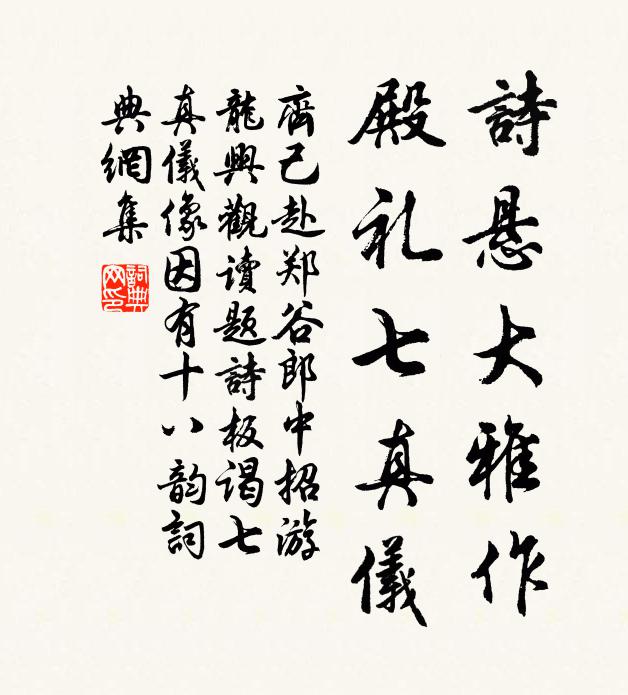 詩悬大雅作
殿礼七真儀
齊己赴郑谷郎中招游
龍興觀讀题詩板谒七
真儀像因有十八韵詞
典網集
詞典
网印